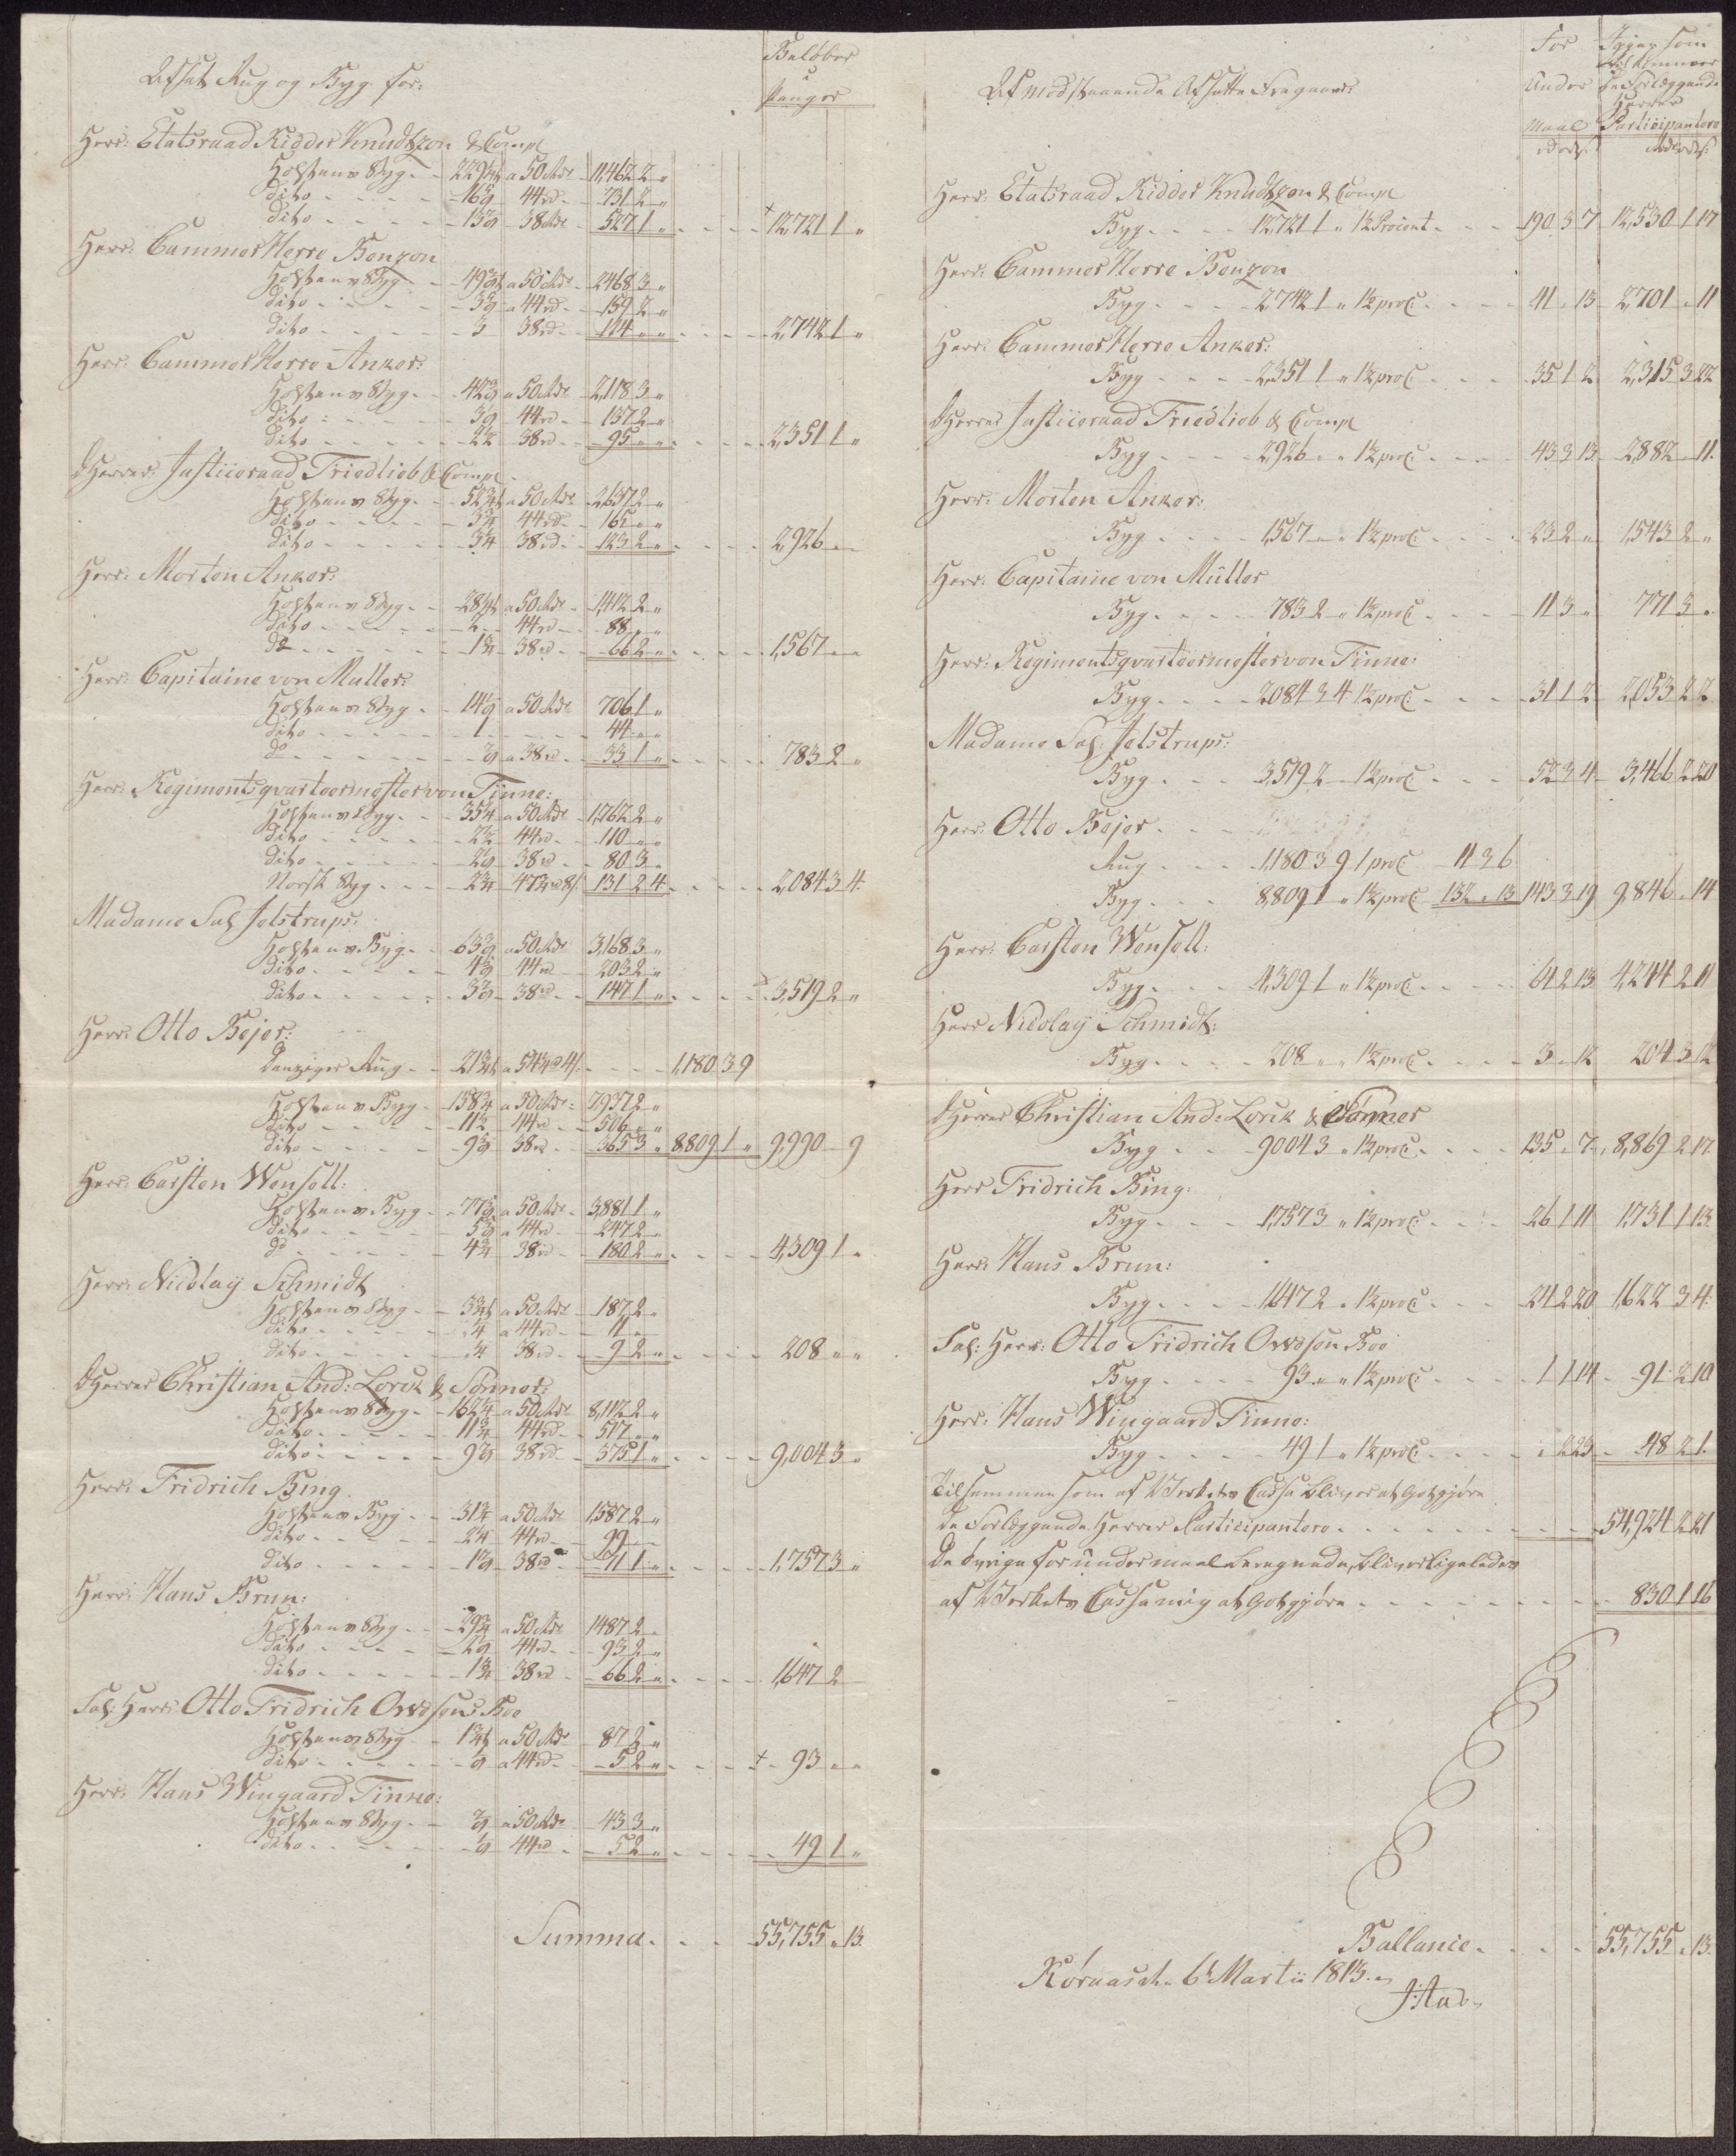 Afsat Rug og Byg for:
Beløber
i
Penger
Herr: Etatsraad Ridder Knudtzon & Comp
Holstensk Byg - - 229¼ a 50 Rdr - 11,462 2 "
dito - - - 16⅝ 44 rd - 731 2 "
dito - - - 13⅞ 38 Rdr - 527 1 " - - - 12,721 1 "
Herr: Cammer Herre Benzon
Holstensk Byg - - 49⅜ a 50 Rdr - 2468 3 "
dito - - - a 44 rd - 159 2 "
dito - - - 3 38 rd - 114 " " - - - 2,742 1 "
Herr: Cammer Herre Anker:
Holstensk Byg - - 42⅜ a 50 Rdr - 2,118 3 "
dito - - - 44 rd - 137 2 "
dito - - - 2½ 38 rd - 95 " " - - - 2,351 1 "
D'Herrer Justiceraad Friedlieb & Comp
Holstensk Byg - - 52¾ a 50 Rdr - 2,637 2 "
dito - - - 3¾ 44 rd - 165 " "
dito - - - 3¼ 38 rd - 123 2 " - - - 2,926 " "
Herr: Morten Anker:
Holstensk Byg - - 28¼ a 50 Rdr - 1,412 2 "
dito - - - 2 44 rd - 88 " "
do - - - 1¾ 38 rd - 66 2 " - - - 1,567 " "
Herr: Capitaine von Muller:
Holstensk Byg - - 14⅛ a 50 Rdr 706 1 "
dito - - - 1 - - 44 " "
do - - - ⅞ a 38 rd - 33 1 " - - - 783 2 "
Herr: Regimentsqvarteermester von Tinne:
Holstensk Byg - - 35¼ a 50 Rdr - 1,762 2 "
dito - - - 2½ 44 rd - 110 " "
dito - - - 2⅛ 38 rd - 80 3 "
Norsk Byg - - - 2¾ 47¾ rd 8/ 131 2 4 - - - 2,084 3 4
Madame Sal Jelstrups:
Holstensk Byg - - 63⅜ a 50 Rdr 3,168 3 "
dito - - - 4⅝ 44 rd - 203 2 "
dito - - - 3⅞ 38 rd - 147 1 " - - - 3,519 2 "
Herr: Otto Bejer:
Danziger Rug - - 21¾ a 54¼ rd 4/: - - - 1,180 3 9
Holstensk Byg - 158¾ a 50 Rdr: 7937 2 "
dito - - - 11½ 44 rd - 506 " "
dito - - - 9⅝ 38 rd - 365 3 " 8809 1 " 9,990 - 9
Herr: Carsten Wensell:
Holstensk Byg - - 77⅝ a 50 Rdr - 3,881 1 "
dito - - - 5⅝ a 44 rd - 247 2 "
do - - - 4¾ 38 rd - 180 2 " - - - 4,309 1 "
Herr: Nicolaÿ Schmidt
Holstensk Byg - - 3¾ a 50 Rdr - 187 2 "
dito - - - ¼ a 44 rd - 11 - -
dito - - - ¼ 38 rd - 9 2 " - - - 208 " "
D'Herrer Christian And: Lorck & Sønner:
Holstensk Byg - 162¼ a 50 Rdr 8,112 2 "
dito - - - 11¾ 44 rd - 517 " "
dito - - - 9⅞ 38 rd - 375 1 " - - - 9,004 3 "
Herr: Fridrich Bing
Holstensk Byg - - 31¾ a 50 Rdr 1,587 2 "
dito - - - 2¼ 44 rd - 99 - -
dito - - - 1⅞ 38 rd - 71 1 " - - - 1,757 3 "
Herr: Hans Brun:
Holstensk Byg - - 29¾ a 50 Rdr 1487 2 -
dito - - - 2⅛ 44 rd - 93 2 "
dito - - - 1¾ 38 rd - 66 2 " - - - 1,647 2
Sal: Herr: Otto Fridrich Owesøns Boe
Holstensk Byg - 1¾ a 50 Rdr - 87 2 "
dito - - - ⅛ a 44 rd - 5 2 " - - - 93 " "
Herr: Hans Wingaard Tinne:
Holstensk Byg - - ⅞ a 50 Rdr - 43 3 "
dito - - - ⅛ 44 rd - 5 2 " - - - 49 1 "
Summa - - - 55,755 " 13
Af modstaaende Afsatte Fragaaer:
For
Under
Maal
rd ort s:
Igjen som
tilkommer
de Forlæggende
Herrer
Participantere
Rd ort s:
Herr: Etatsraad Ridder Knudtzon & Comp
Byg - - - 12,721 1 " 1½ Procent - - - 190 3 7 12,530 1 17
Herr: Cammer Herre Benzon
Byg - - - 2742 1 " 1½ proC - - - 41 " 13 2,701 " 11
Herr: Cammer Herre Anker:
Byg - - - 2,351 1 " 1½ proC - - - 35 1 2 2,315 3 22
D'Herrer Justiceraad Friedlieb & Comp
Byg - - - 2,926 " " 1½ proC - - - 43 3 13 2,882 " 11
Herr: Morten Anker:
Byg - - - 1,567 " " 1½ proC - - - 23 2 " 1,543 2 "
Herr: Capitaine von Müller
Byg - - - 783 2 " 1½ proC - - - 11 3 " 771 3 "
Herr: Regimentsqvarteermester von Tinne:
Byg - - - 2084 3 4 1½ proC - - - 31 1 2 2,053 2 2
Madame Sal: Jelstrups:
Byg - - - 3,519 2 - 1½ proC - - - 52 3 4 3,466 2 20
Herr: Otto Bejer - - -
Rug - - - 1,180 3 9 1 proC - 11 3 6
Byg - - - 8,809 1 " 1½ proC - 132 " 13 143 3 19 9,846 " 14
Herr: Carsten Wensell:
Byg - - - 4,309 1 " 1½ proC - - - 64 2 13 4,244 2 11
Herr Nicolaÿ Schmidt:
Byg - - - 208 " " 1½ proC - - - 3 " 12 204 3 12
D'Herrer Christian And: Lorck & Sønner
Byg - - 9004 3 " 1½ proC - - - 135 " 7 8,869 2 17
Herr Fridrich Bing:
Byg - - - 1,757 3 " 1½ proC - - - 26 1 11 1,731 1 13
Herr: Hans Brun:
Byg - - - 1,647 2 " 1½ proC - - - 24 2 20 1,622 3 4
Sal: Herr: Otto Fridrich Owesøn Boe
Byg - - - 93 " " 1½ proC - - - 1 1 14 91 2 10
Herr: Hans Wingaard Tinne:
Byg - - - 49 1 " 1½ proC - - - " 2 23 48 2 1
Tilsammen som af Værkets Cassa bliver at Gotgjøre
de Forlæggende Herrer Participantere - - - 54,924 2 21
De øvrige for undermaal beregnede, bliver ligeledes
af Værkets Cassa mig at Gotgjøre - - - 830 1 16
Ballance - - - 55,755 " 13
Røraas d. 6 Martii 1813